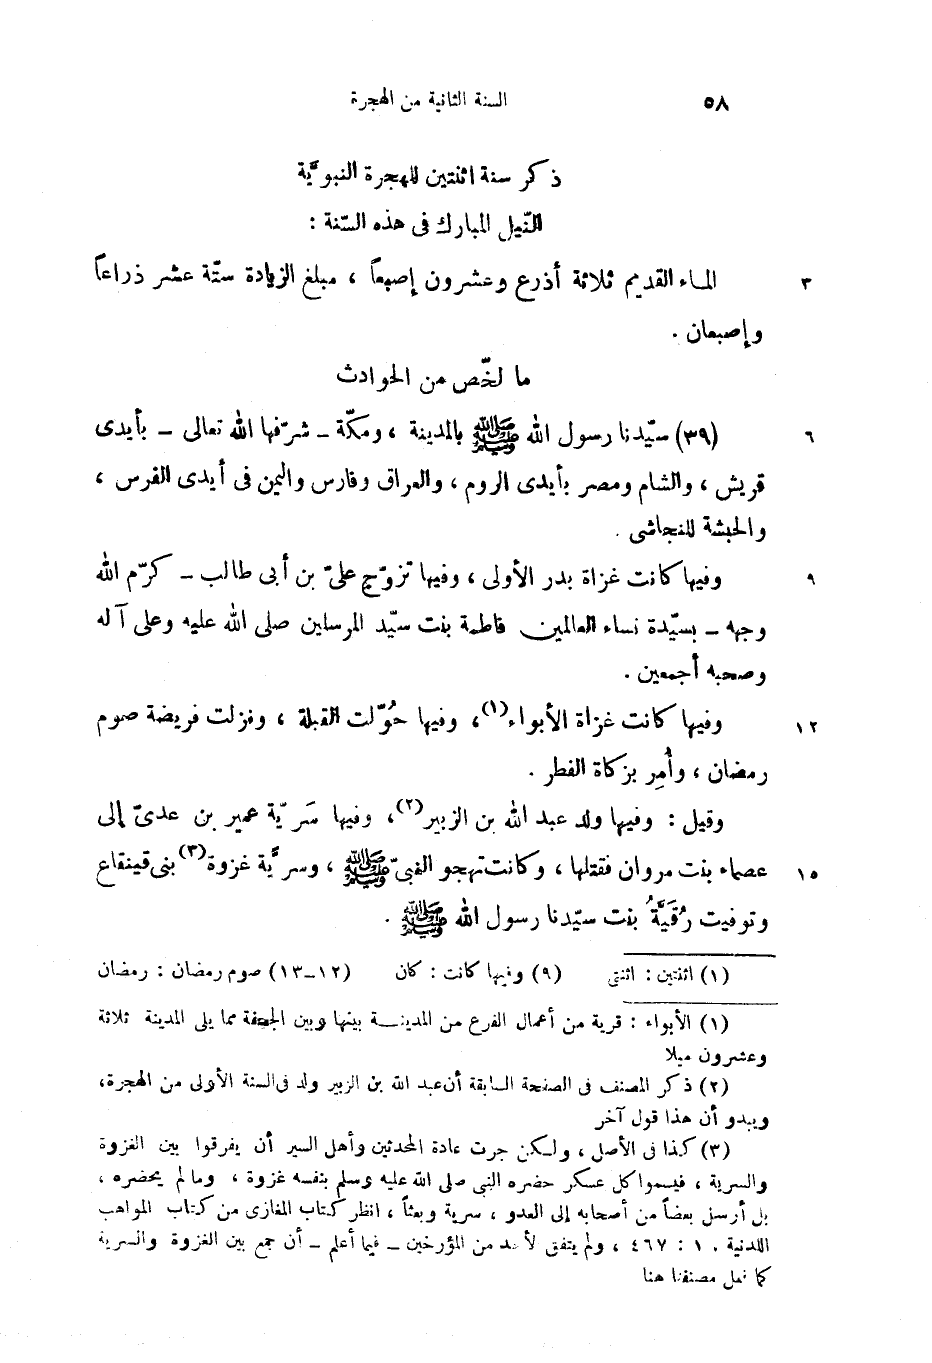 ٥٨ السنة الثانية من الهجرة
ذكر سنة اثنتين للهجرة النبويّة
النّيل المبارك فى هذه السّنة :
٣ الماء القديم ثلاثة أذرع وعشرون إصبعاً ، مبلغ الزيادة ستّة عشر ذراعاً
وإصبعان .
ما لخّص من الحوادث
٦ (٣٩) سيّدنا رسول الله ﷺ بالمدينة ، ومكّة ـ شرّفها الله تعالى ـ بأيدى
قريش ، والشام ومصر بأيدى الروم ، والعراق وفارس واليمن فى أيدى الفرس ،
والحبشة للنجاشى .
٩ وفيها كانت غزاة بدر الأولى ، وفيها تزوّج علىّ بن أبى طالب ـ كرّم الله
وجهه ـ بسيّدة نساء العالمين فاطمة بنت سيّد المرسلين صلى الله عليه وعلى آله
وصحبه أجمعين .
١٢ وفيها كانت غزاة الأبواء(١)، وفيها حُوّلت القبلة ، ونزلت فريضة صوم
رمضان ، وأُمِر بزكاة الفطر .
وقيل : وفيها ولد عبد الله بن الزبير(٢)، وفيها سَريّة عمير بن عدىّ إلى
١٥ عصماء بنت مروان فقتلها ، وكانت تهجو النبىّ ﷺ ، وسريّة غزوة(٣) بنى قينقاع
وتوفيت رُقيَّةُ بنت سيّدنا رسول الله ﷺ .
(١) اثنتين : اثنتى (٩) وفيها كانت : كان (١٢ــ١٣) صوم رمضان : رمضان
(١) الأبواء : قرية من أعمال الفرع من المدينة بينها وبين الجحفة مما يلى المدينة ثلاثة
وعشرون ميلا
(٢) ذكر المصنف فى الصفحة السابقة أن عبد الله بن الزبير ولد فى السنة الأولى من الهجرة،
ويبدو أن هذا قول آخر
(٣) كذا فى الأصل ، ولكن جرت عادة المحدثين وأهل السير أن يفرقوا بين الغزوة
والسرية ، فيسموا كل عسكر حضره النبى صلى الله عليه وسلم بنفسه غزوة ، وما لم يحضره ،
بل أرسل بعضاً من أصحابه إلى العدو ، سرية وبعثاً ، انظر كتاب المغازى من كتاب المواهب
اللدنية . ١ : ٤٦٧ ، ولم يتفق لأحد من المؤرخين ـ فيما أعلم ـ أن جمع بين الغزوة والسرية
كما فعل مصنفنا هنا